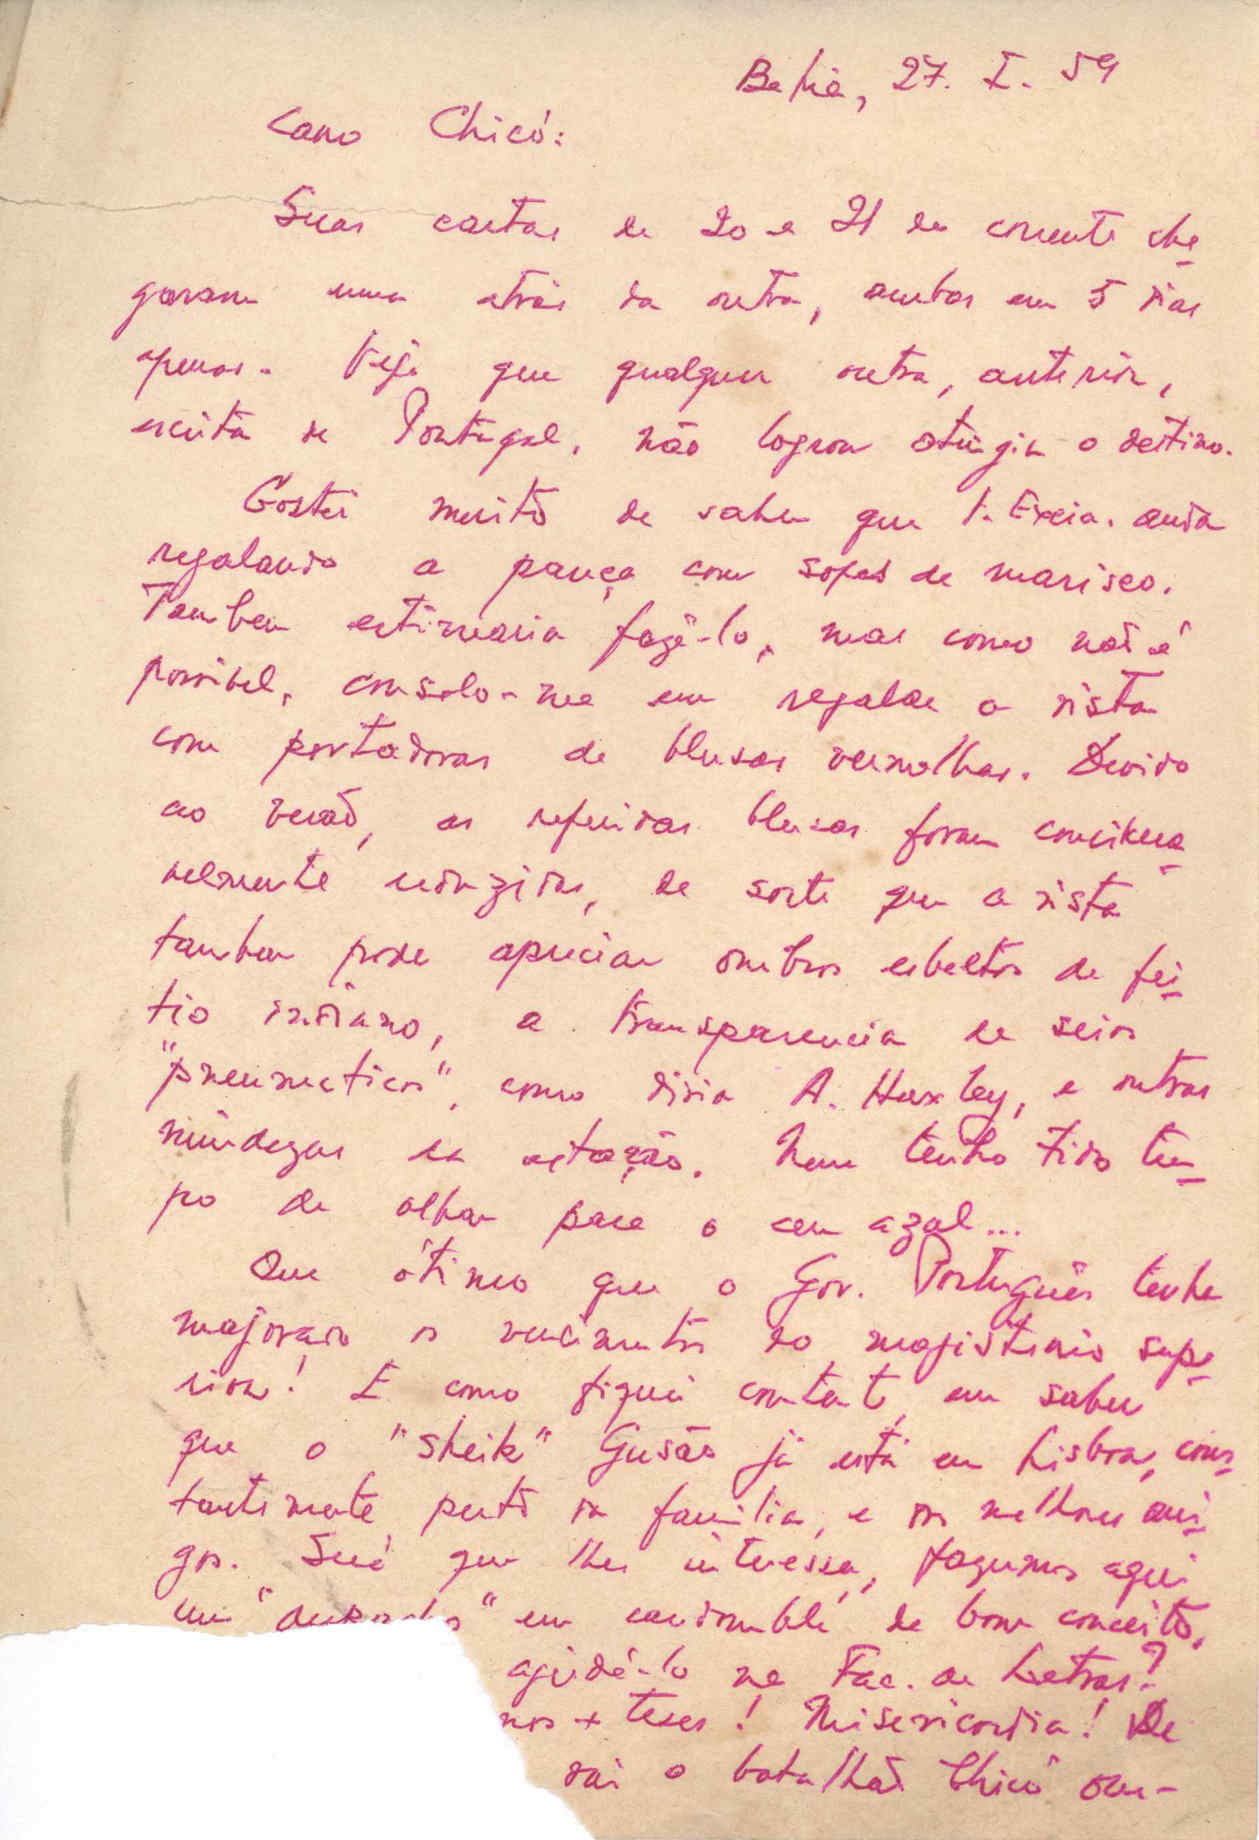 Bahia, 27. I. 59
Caro Chicó:
Suas cartas de 20 e 21 do corrente che-
garam uma atrás da outra, ambas em 5 dias
apenas. Veja que qualquer outra, anterior,
escrita de Portugal, não logrou atingir o destino.
Gostei muito de saber que V. Excia. anda
regalando a pança com sopas de marisco.
Tambem estimaria fazê-lo, mas como não é
possivel, consolo-me em regalar a vista
com portadoras de blusas vermelhas. Devido
ao verão, as referidas blusas foram considera-
velmente reduzidas, de sorte que a vista
tambem pode apreciar ombros esbeltos de fei-
tio indiano, a transparencia de seios
"pneumaticos", como diria A. Huxley, e outras
miudezas da estação. Nem tenho tido tem-
po de olhar para o ceu azul...
Que ótimo que o Gov. Português tenha
majorado os vencimentos do magistério supe-
rior! E como fiquei contente em saber
que o "sheik" Gusão já está em Lisboa, cons-
tantemente perto da familia, e dos melhores ami-
gos. Será que lhe interessa, fazermos aqui
um em candomblé de bom conceito,
ajudá-lo na Fac. de Letras?
nos + teses! Misericordia! De
vai o batalhão Chicó